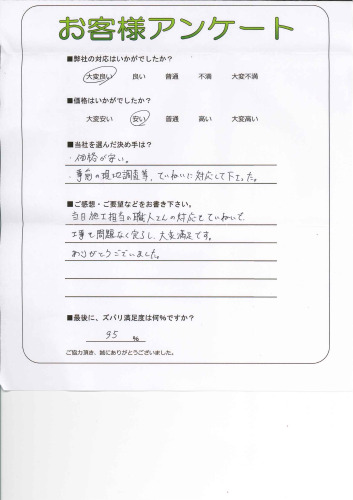 お客様アンケート
■弊社の対応はいかがでしたか?
大変良い 良い 普通 不満 大変不満
■価格はいかがでしたか?
大変安い 安い 普通 高い 大変高い
■当社を選んだ決め手は?
・価格が安い。
・事前の現地調査等、ていねいに対応して下さった。
■ご感想・ご要望などをお書き下さい。
当日施工担当の職人さんの対応もていねいで、
工事も問題なく完了し、大変満足です。
ありがとうございました。
■最後に、ズバリ満足度は何%ですか?
95 %
ご協力頂き、誠にありがとうございました。